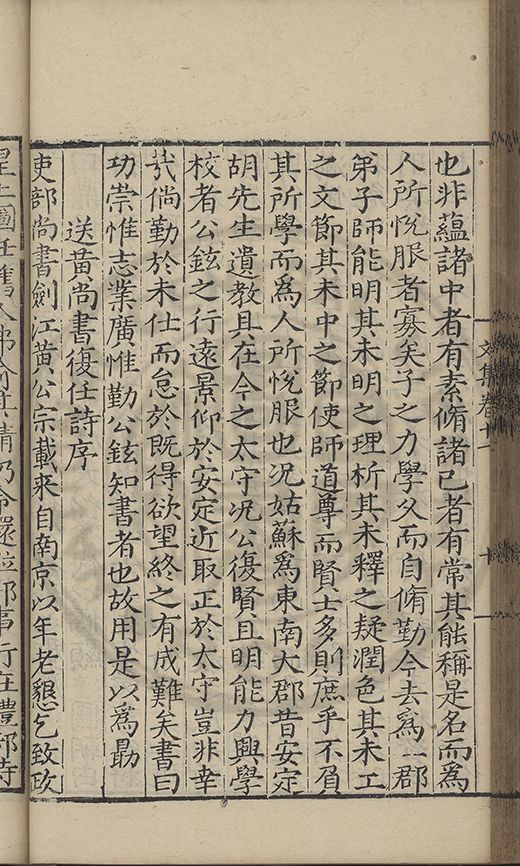 文集卷十
也非蘊諸中者有素脩諸已者有常其能稱是名而爲
人所悅服者寡矣子之力學久而自脩勤今去爲一郡
弟子師能明其未明之理析其未釋之疑潤色其未工
之文節其未中之節使師道尊而賢士多則庶乎不負
其所學而爲人所悅服也况姑蘇爲東南大郡昔安定
胡先生遺教具在今之太守况公復賢且明能力興學
校者公鉉之行遠景仰於安定近取正於太守豈非幸
㢤倘勤於未仕而怠於既得欲望終之有成難矣書曰
功崇惟志業廣惟勤公鉉知書者也故用是以爲勗
送黄尚書復任詩序
吏部尚書劍江黄公宗載来自南京以年老懇乞致政